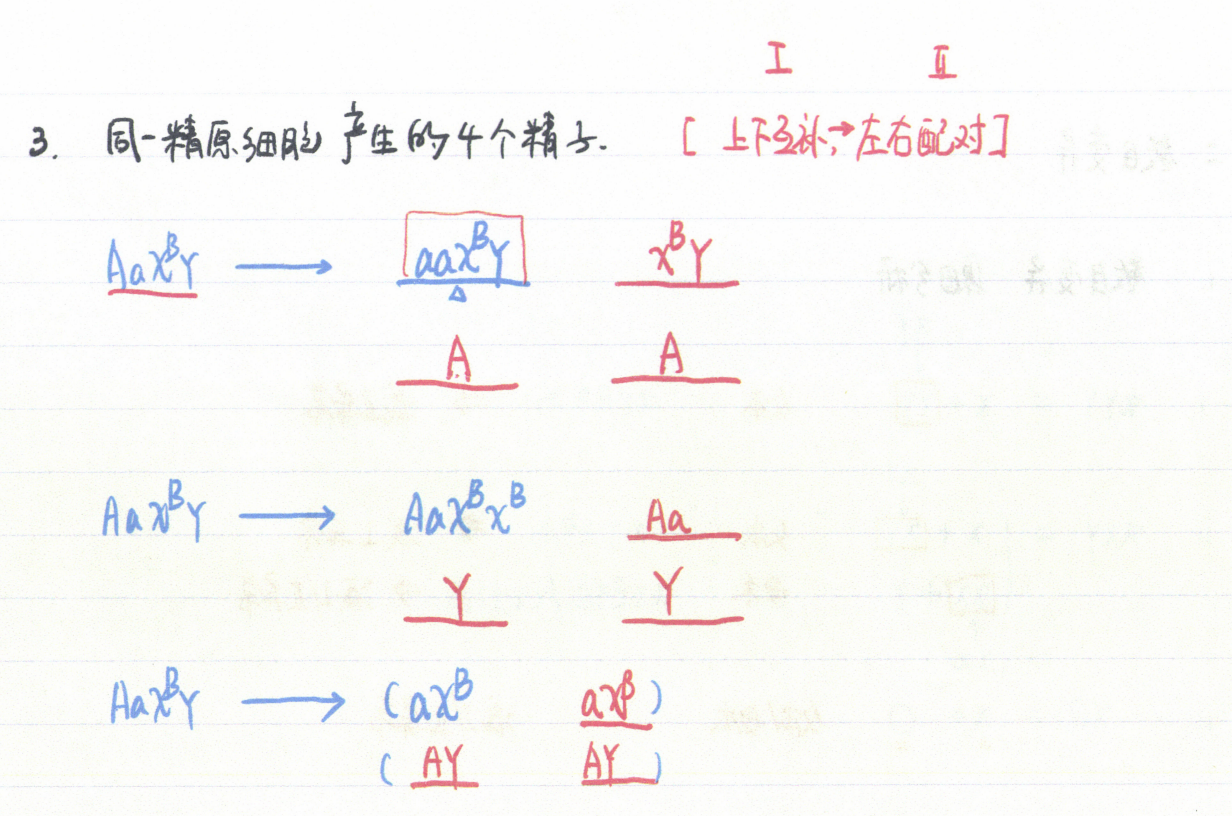 I II
3. 同一精原细胞产生的4个精子. [上下互补,→左右配对]
AaX^BY → aaX^BY X^BY
A A
AaX^BY → AaX^BX^B Aa
Y Y
AaX^BY → (aX^B aX^B)
(AY AY)